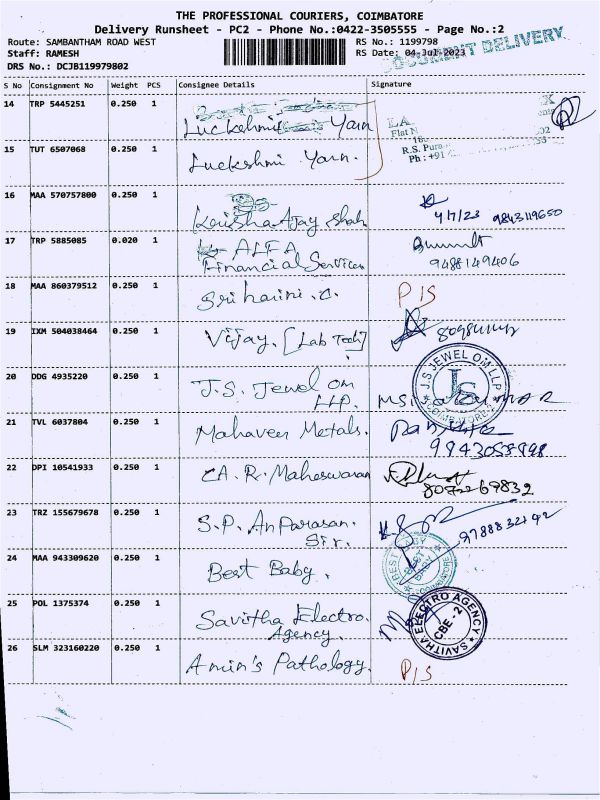 THE PROFESSIONAL COURIERS, COIMBATORE
Delivery Runsheet - PC2 - Phone No.:0422-3505555 - Page No.:2
Route: SAMBANTHAM ROAD WEST RS No.: 1199798
Staff: RAMESH RS Date: 04-Jul-2023
DOCUMENT DELIVERY
DRS No.: DCJB119979802
S No Consignment No Weight PCS Consignee Details Signature
14 TRP 5445251 0.250 1 Luckshmi Yarn
Flat N
R.S. Pura
Ph : +91
15 TUT 6507068 0.250 1 Luckshmi Yarn.
16 MAA 570757800 0.250 1 Krisha Ajay Shah 4/7/23 9843119650
17 TRP 5885085 0.020 1 ALFA
Financial Services 9488149406
18 MAA 860379512 0.250 1 Sri harini .C. P/S
19 IXM 504038464 0.250 1 Vijay. [Lab Tech]
20 DDG 4935220 0.250 1 J.S. Jewel om
LLP.
J.S JEWEL OM LLP
JS
COIMBATORE
21 TVL 6037804 0.250 1 Mahaveer Metals.
9843058898
22 DPI 10541933 0.250 1 CA. R. Maheswaran
8072267832
23 TRZ 155679678 0.250 1 S.P. Anparasan.
Sir. 9788832192
24 MAA 943309620 0.250 1 Best Baby.
BEST BABY
25 POL 1375374 0.250 1 Savitha Electro.
Agency.
SAVITHA ELECTRO AGENCY
CBE - 2
26 SLM 323160220 0.250 1 Amin's Pathology. P/S